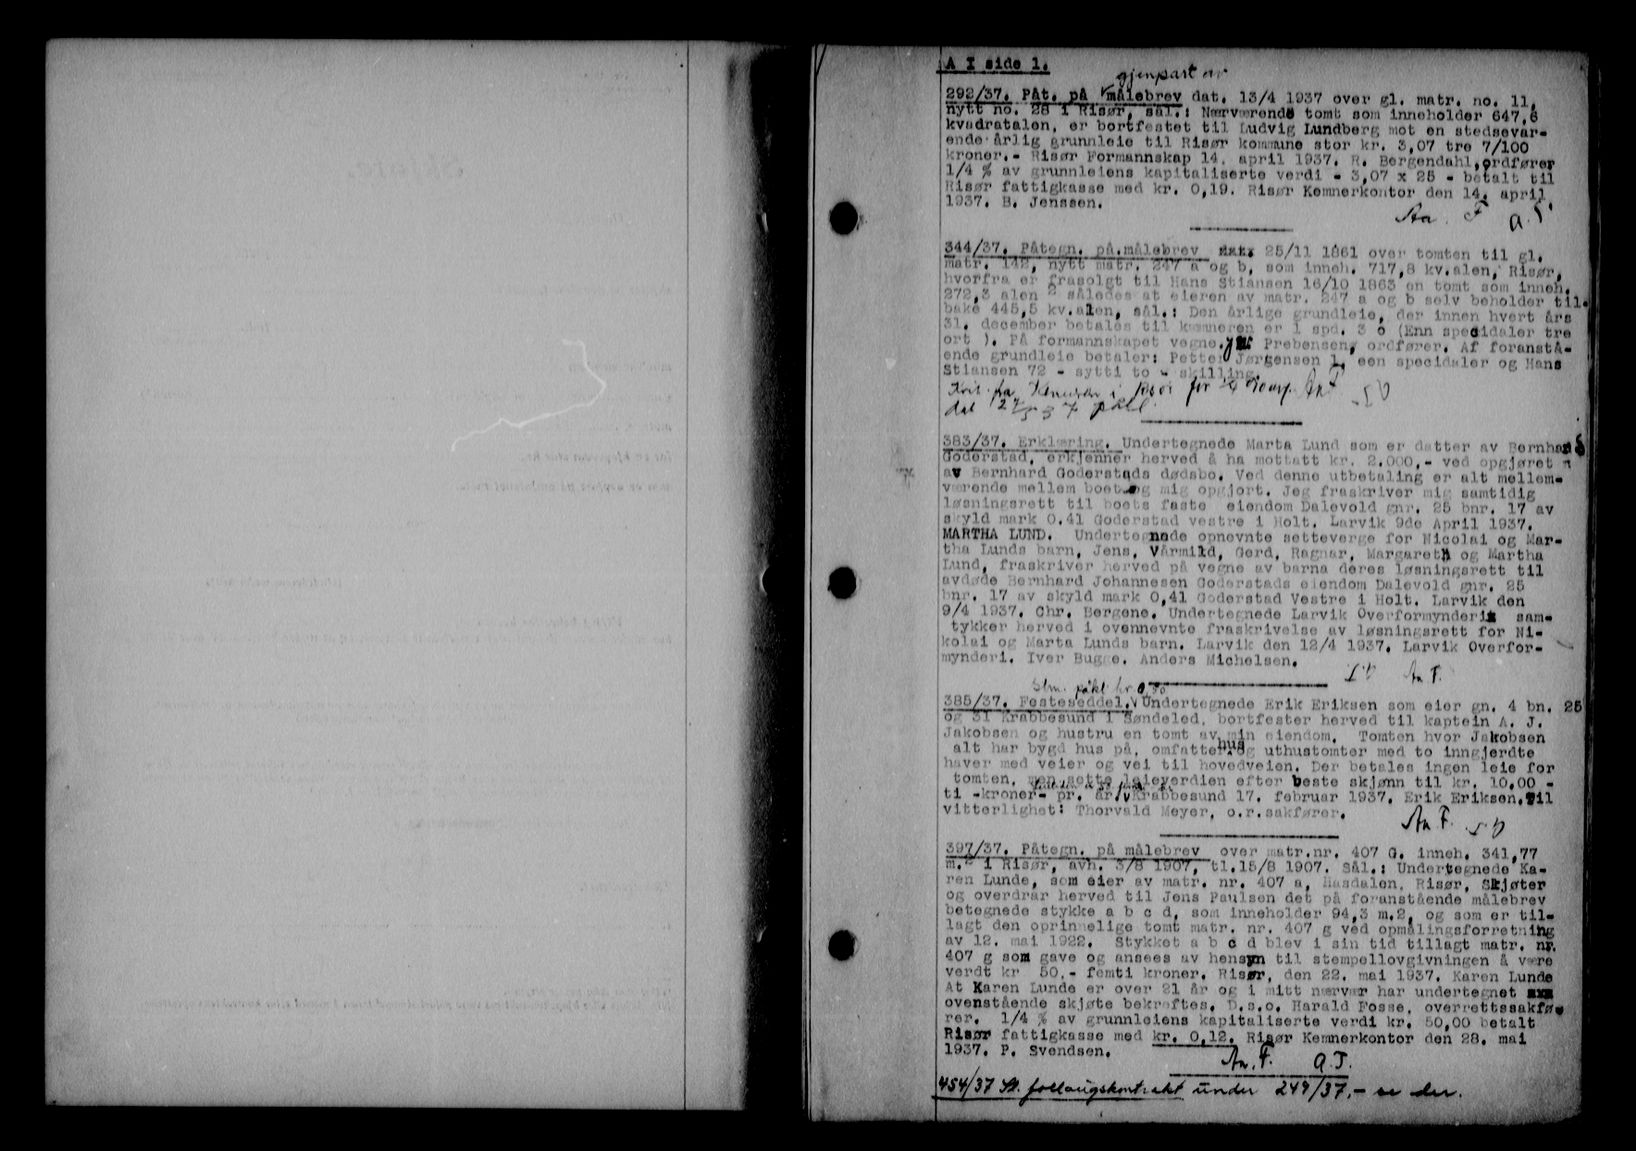 A I side 1.
gjenpart av
292/37. Påt. på målebrev dat. 13/4 1937 over gl. matr. no. 11,
nytt no. 28 i Risør, sål.: Nærværende tomt som inneholder 647,6
kvadratalen, er bortfestet til Ludvig Lundberg mot en stedsevar-
ende årlig grunnleie til Risør kommune stor kr. 3,07 tre 7/100
kroner.- Risør Formannskap 14. april 1937. R. Bergendahl, ordfører
1/4 % av grunnleiens kapitaliserte verdi - 3,07 x 25 - betalt til
Risør fattigkasse med kr. 0,19. Risør Kemnerkontor den 14. april
1937. B. Jenssen.
344/37. Påtegn. på målebrev dat. 25/11 1861 over tomten til gl.
matr. 142, nytt matr. 247 a og b, som inneh. 717,8 kv.alen, Risør,
hvorfra er frasolgt til Hans Stiansen 16/10 1863 en tomt som inneh.
272,3 alen 2 således at eieren av matr. 247 a og b selv beholder til-
bake 445,5 kv.alen, sål.: Den årlige grundleie, der innen hvert års
31. december betales til kæmneren er 1 spd. 3 o (Enn specidaler tre
ort ). På formannskapet vegne. Prebensen, ordfører. Af foranstå-
ende grundleie betaler: Petter Jørgensen 1, een specidaler og Hans
Stiansen 72 - sytti to - skilling.
383/37. Erklæring. Undertegnede Marta Lund som er datter av Bernhard
Goderstad, erkjenner herved å ha mottatt kr. 2.000,- ved opgjøret
av Bernhard Goderstads dødsbo. Ved denne utbetaling er alt mellem-
værende mellem boet og mig opgjort. Jeg fraskriver mig samtidig
løsningsrett til boets faste eiendom Dalevold gnr. 25 bnr. 17 av
skyld mark 0.41 Goderstad vestre i Holt. Larvik 9de April 1937.
MARTHA LUND. Undertegnede opnevnte setteverge for Nicolai og Mar-
tha Lunds barn, Jens, Vårmild, Gerd, Ragnar, Margareth og Martha
Lund, fraskriver herved på vegne av barna deres løsningsrett til
avdøde Bernhard Johannesen Goderstads eiendom Dalevold gnr. 25
bnr. 17 av skyld mark 0,41 Goderstad Vestre i Holt. Larvik den
9/4 1937. Chr. Bergene. Undertegnede Larvik Overformynderi sam-
tykker herved i ovennevnte fraskrivelse av løsningsrett for Ni-
kolai og Marta Lunds barn. Larvik den 12/4 1937. Larvik Overfor-
mynderi. Iver Bugge. Anders Michelsen.
385/37. Festeseddel. Undertegnede Erik Eriksen som eier gn. 4 bn. 25
og 31 Krabbesund i Søndeled, bortfester herved til kaptein A. J.
Jakobsen og hustru en tomt av min eiendom. Tomten hvor Jakobsen
alt har bygd hus på, omfatter hus og uthustomter med to inngjerdte
haver med veier og vei til hovedveien. Der betales ingen leie for
tomten, men sette leieverdien efter beste skjønn til kr. 10,00 -
ti -kroner- pr. år. Krabbesund 17. februar 1937. Erik Eriksen. Til
vitterlighet: Thorvald Meyer, o.r.sakfører.
397/37. Påtegn. på målebrev over matr.nr. 407 G. inneh. 341,77
m.2 i Risør, avh. 3/8 1907, tl.15/8 1907. Sål.: Undertegnede Ka-
ren Lunde, som eier av matr. nr. 407 a, Hasdalen, Risør, Skjøter
og overdrar herved til Jens Paulsen det på foranstående målebrev
betegnede stykke a b c d, som inneholder 94,3 m.2, og som er til-
lagt den oprinnelige tomt matr. nr. 407 g ved opmålingsforretning
av 12. mai 1922. Stykket a b c d blev i sin tid tillagt matr. nr.
407 g som gave og ansees av hensyn til stempellovgivningen å være
verdt kr 50,- femti kroner. Risør, den 22. mai 1937. Karen Lunde
At Karen Lunde er over 21 år og i mitt nærvær har undertegnet
ovenstående skjøte bekreftes. D.s.o. Harald Fosse, overrettssakfø-
rer. 1/4 % av grunnleiens kapitaliserte verdi kr. 50,00 betalt
Risør fattigkasse med kr. 0,12. Risør Kemnerkontor den 28. mai
1937. P. Svendsen.
454/37 under 249/37.- se der.